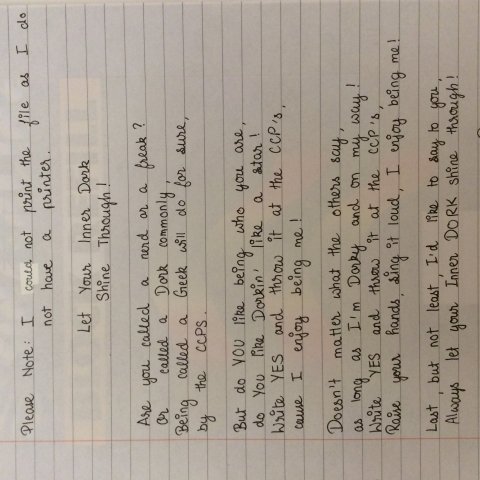 Please Note: I could not print the file as I do
not have a printer.
Let Your Inner Dork
Shine Through!
Are you called a nerd or a freak?
Or called a Dork commonly,
Being called a Greek will do for sure,
by the CCPS.
But do YOU like being who you are,
do YOU like Dorkin' like a star!
Write YES and throw it at the CCP's,
cause I enjoy being me!
Doesn't matter what the others say,
as long as I'm Dorky and on my way!
Write YES and throw it at the CCP's,
Raise your hands, sing it loud, I enjoy being me!
Last, but not least, I'd like to say to you,
Always let your Inner DORK shine through!